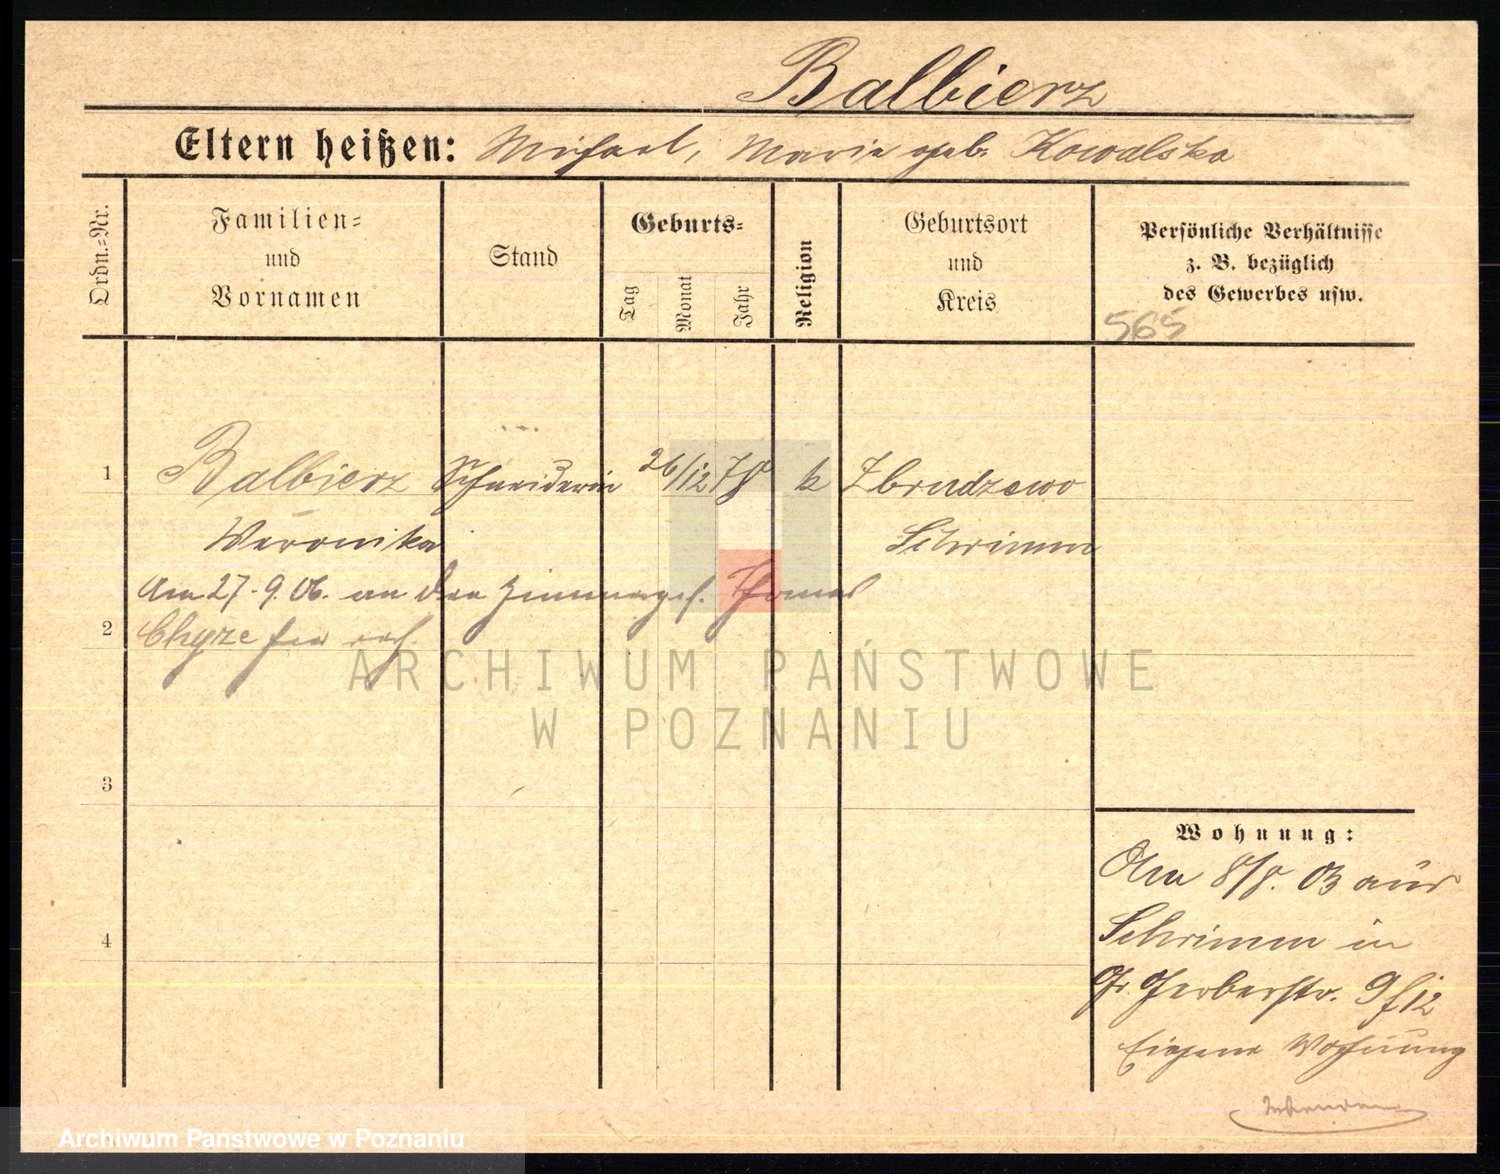 Balbierz
Eltern heißen: Michael, Marie geb. Kowalska
Ordn.-Nr.
Familien-
und
Vornamen
Stand
Geburts-
Tag
Monat
Jahr
Religion
Geburtsort
und
Kreis
Persönliche Verhältnisse
z. B. bezüglich
des Gewerbes usw.
565
1 Balbierz Schneiderin 26/12 78 k Zbrudzewo
Weronika Schrimm
Am 27.9.06. an den Zimmerges. Thomas
2 Chyze
3
4
Wohnung:
Am 8/8. 03 aus
Schrimm in
Gr. Gerberstr. 9 f 12
Eigene Wohnung
ARCHIWUM PAŃSTWOWE
W POZNANIU
Archiwum Państwowe w Poznaniu